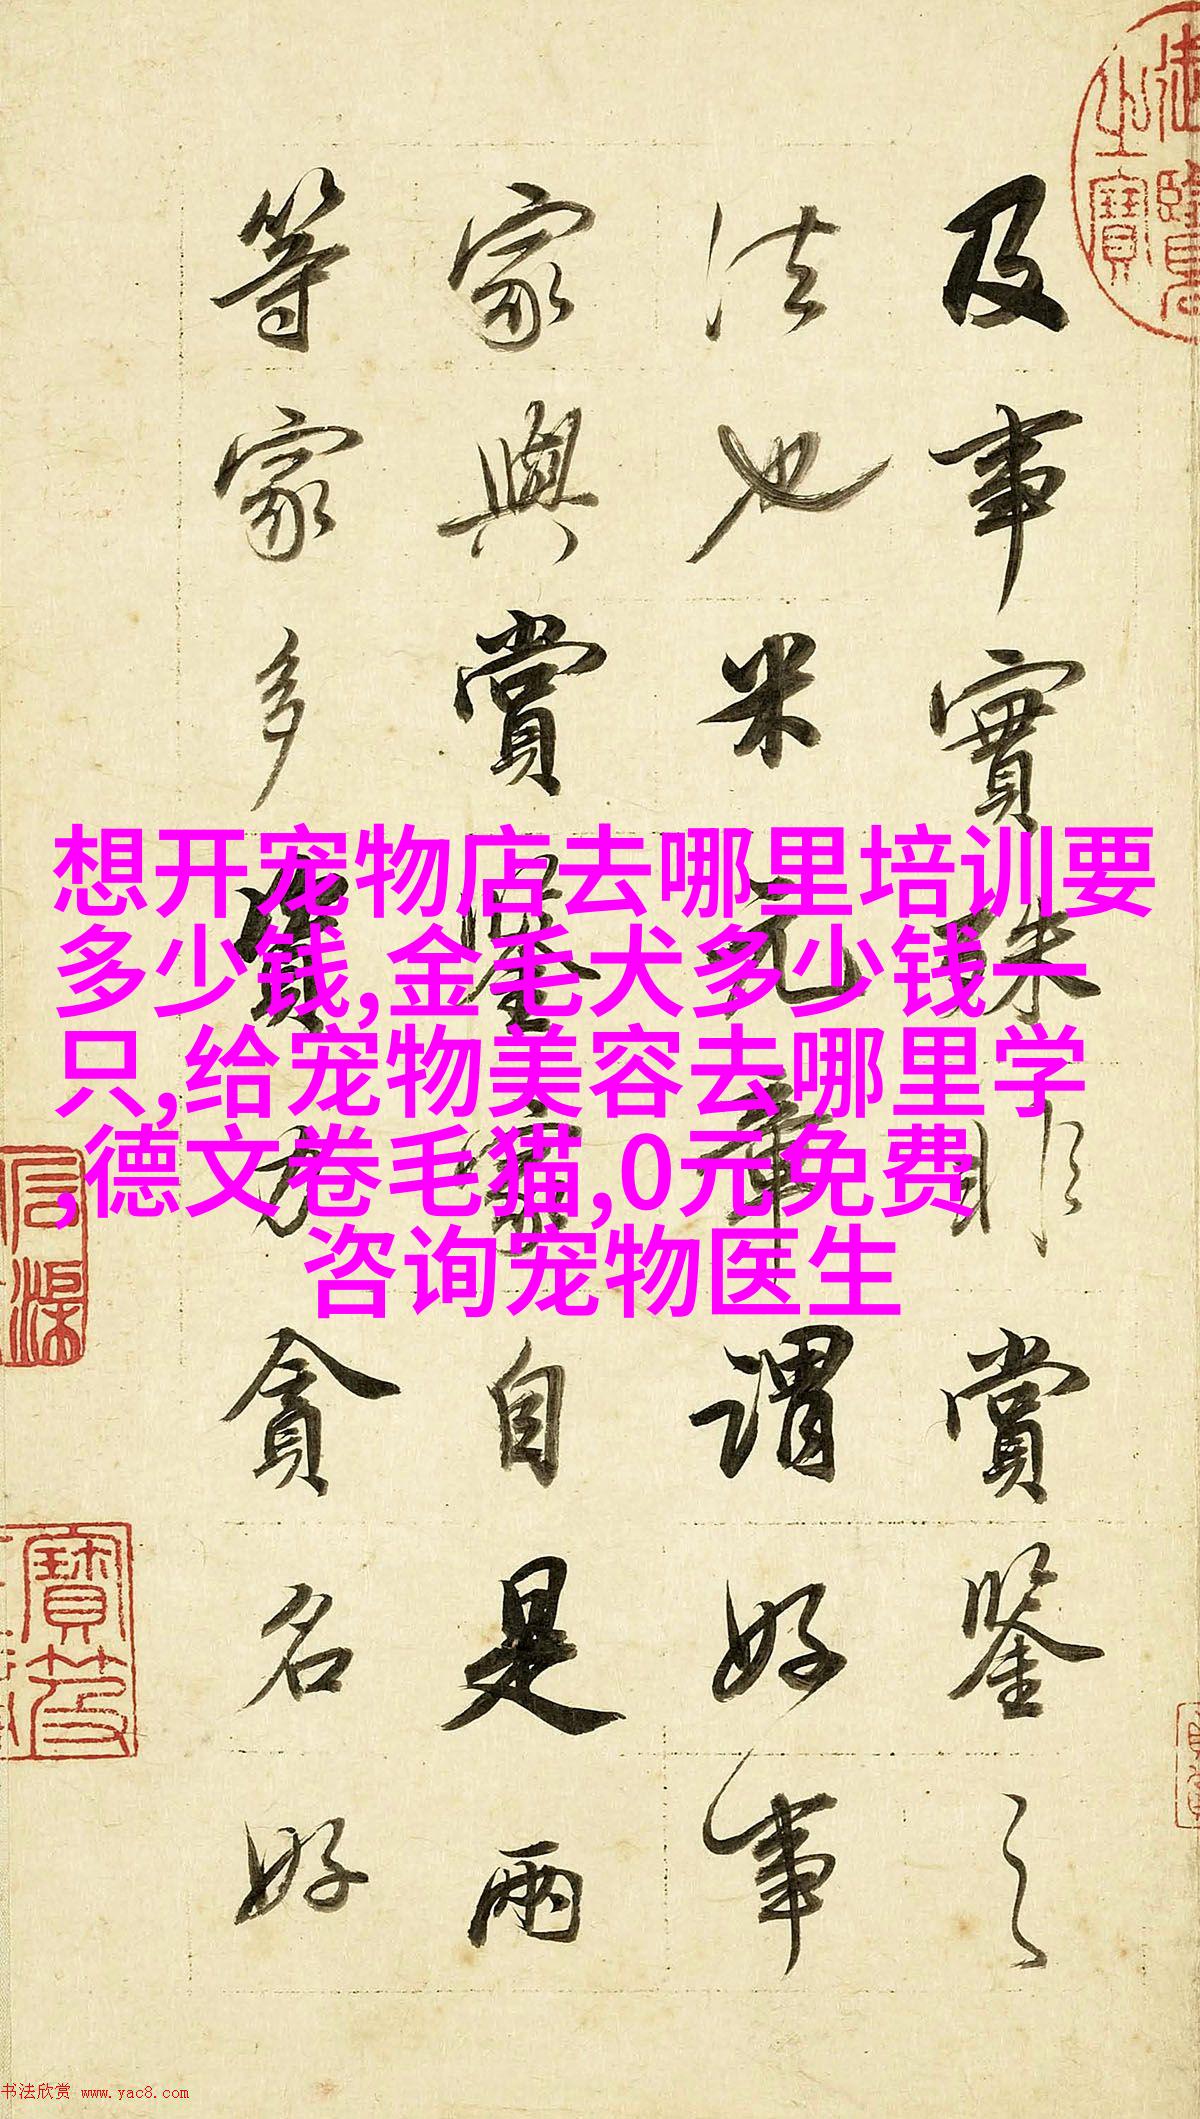 及事實殊非賞鑒之
法也米元章謂好事
家與賞鑒家自是兩
等家多資力貪名好
想开宠物店去哪里培训要
多少钱,金毛犬多少钱一
只,给宠物美容去哪里学
,德文卷毛猫,0元免费
咨询宠物医生
书法欣赏 www.yac8.com